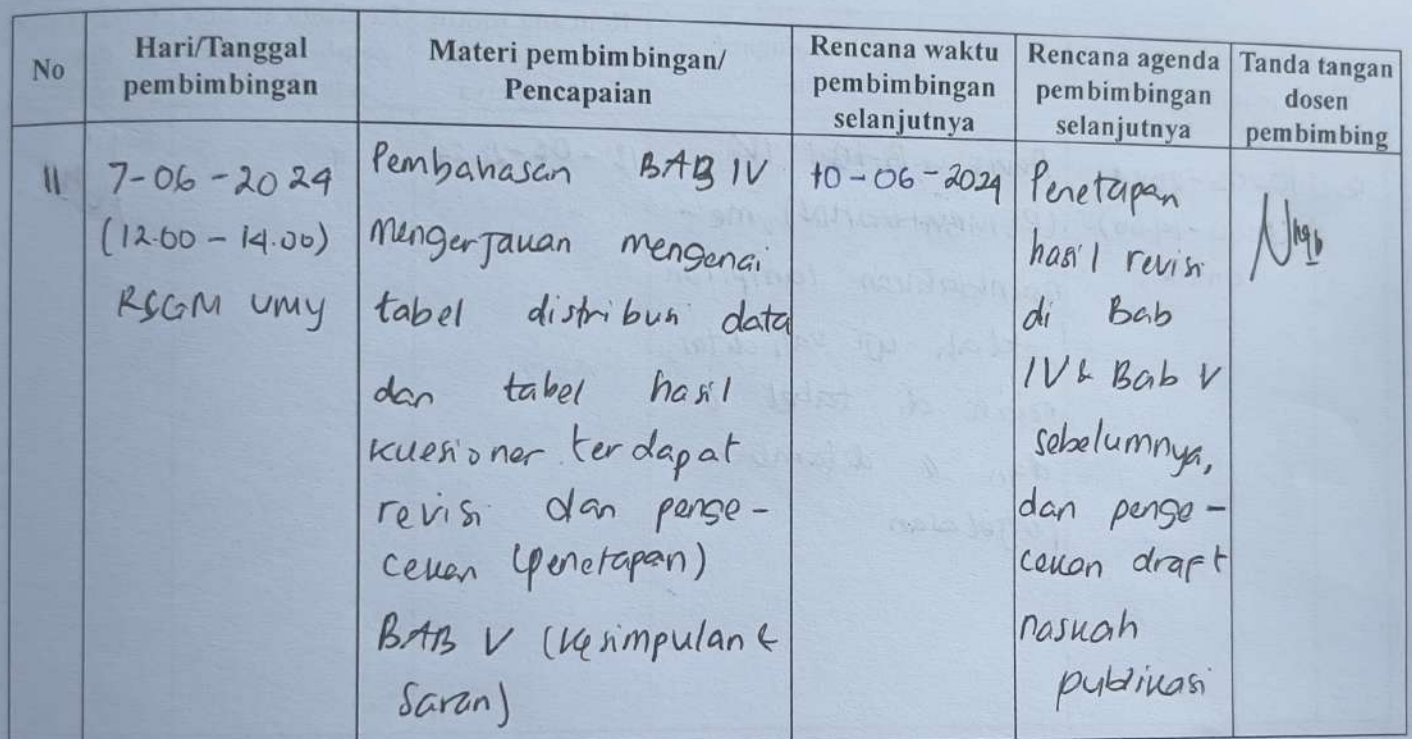 No
Hari/Tanggal
pembimbingan
Materi pembimbingan/
Pencapaian
Rencana waktu
pembimbingan
selanjutnya
Rencana agenda
pembimbingan
selanjutnya
Tanda tangan
dosen
pembimbing
11
7-06-2024
(12.00 - 14.00)
RSGM UMY
Pembahasan BAB IV
mengerjakan mengenai
tabel distribusi data
dan tabel hasil
kuesioner terdapat
revisi dan penge-
cekan (penetapan)
BAB V (Kesimpulan &
Saran)
10-06-2024
Penetapan
hasil revisi
di Bab
IV & Bab V
sebelumnya,
dan penge-
cekan draft
naskah
publikasi